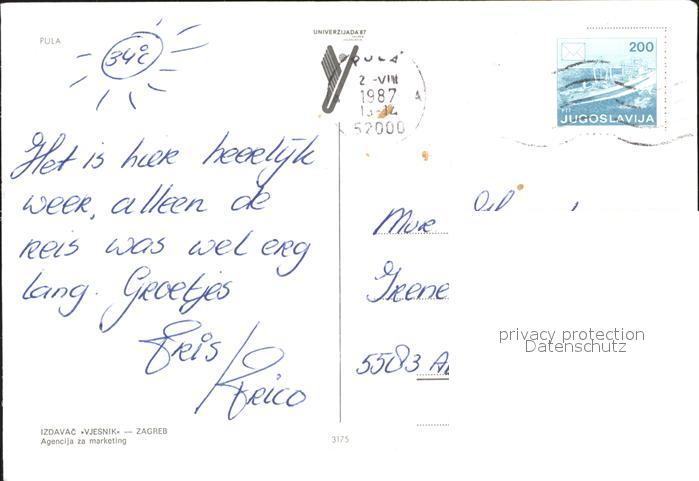 PULA
34°C
UNIVERZIJADA'87
PULA
2 -VIII
1987
13-14
52000
200
PTT
JUGOSLAVIJA
Het is hier heerlijk
weer, alleen de
reis was wel erg
lang. Groetjes
Iris / Krico
Irene
privacy protection
Datenschutz
IZDAVAČ »VJESNIK« — ZAGREB
Agencija za marketing
3175